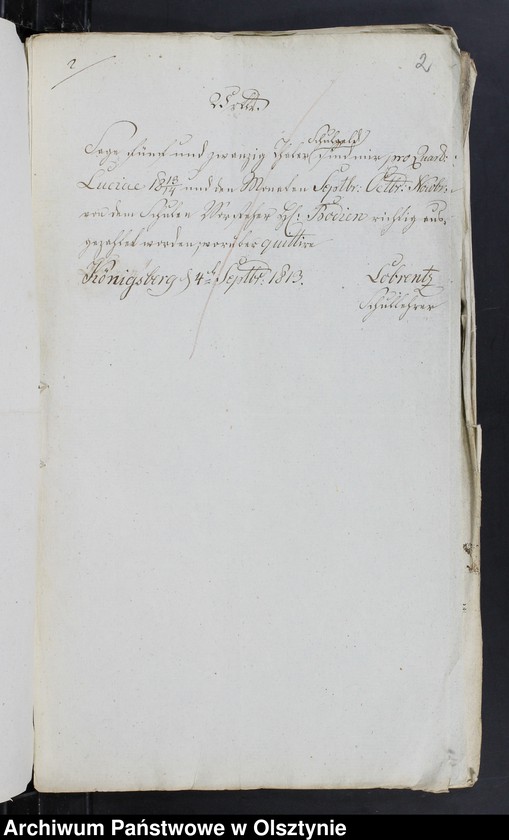 2
2
25 rtl.
Schulgeld
Sage fünf und zwanzig Thaler sind mir pro Quart:
Luciae 1813/14 und den Monaten Septbr: Octbr: Novbr:
von dem Schulen Vorsteher H: Bodien richtig aus-
gezahlt worden, worüber quittire
Königsberg d 4t Septbr: 1813.
Lobrentz
Schullehrer
Archiwum Państwowe w Olsztynie